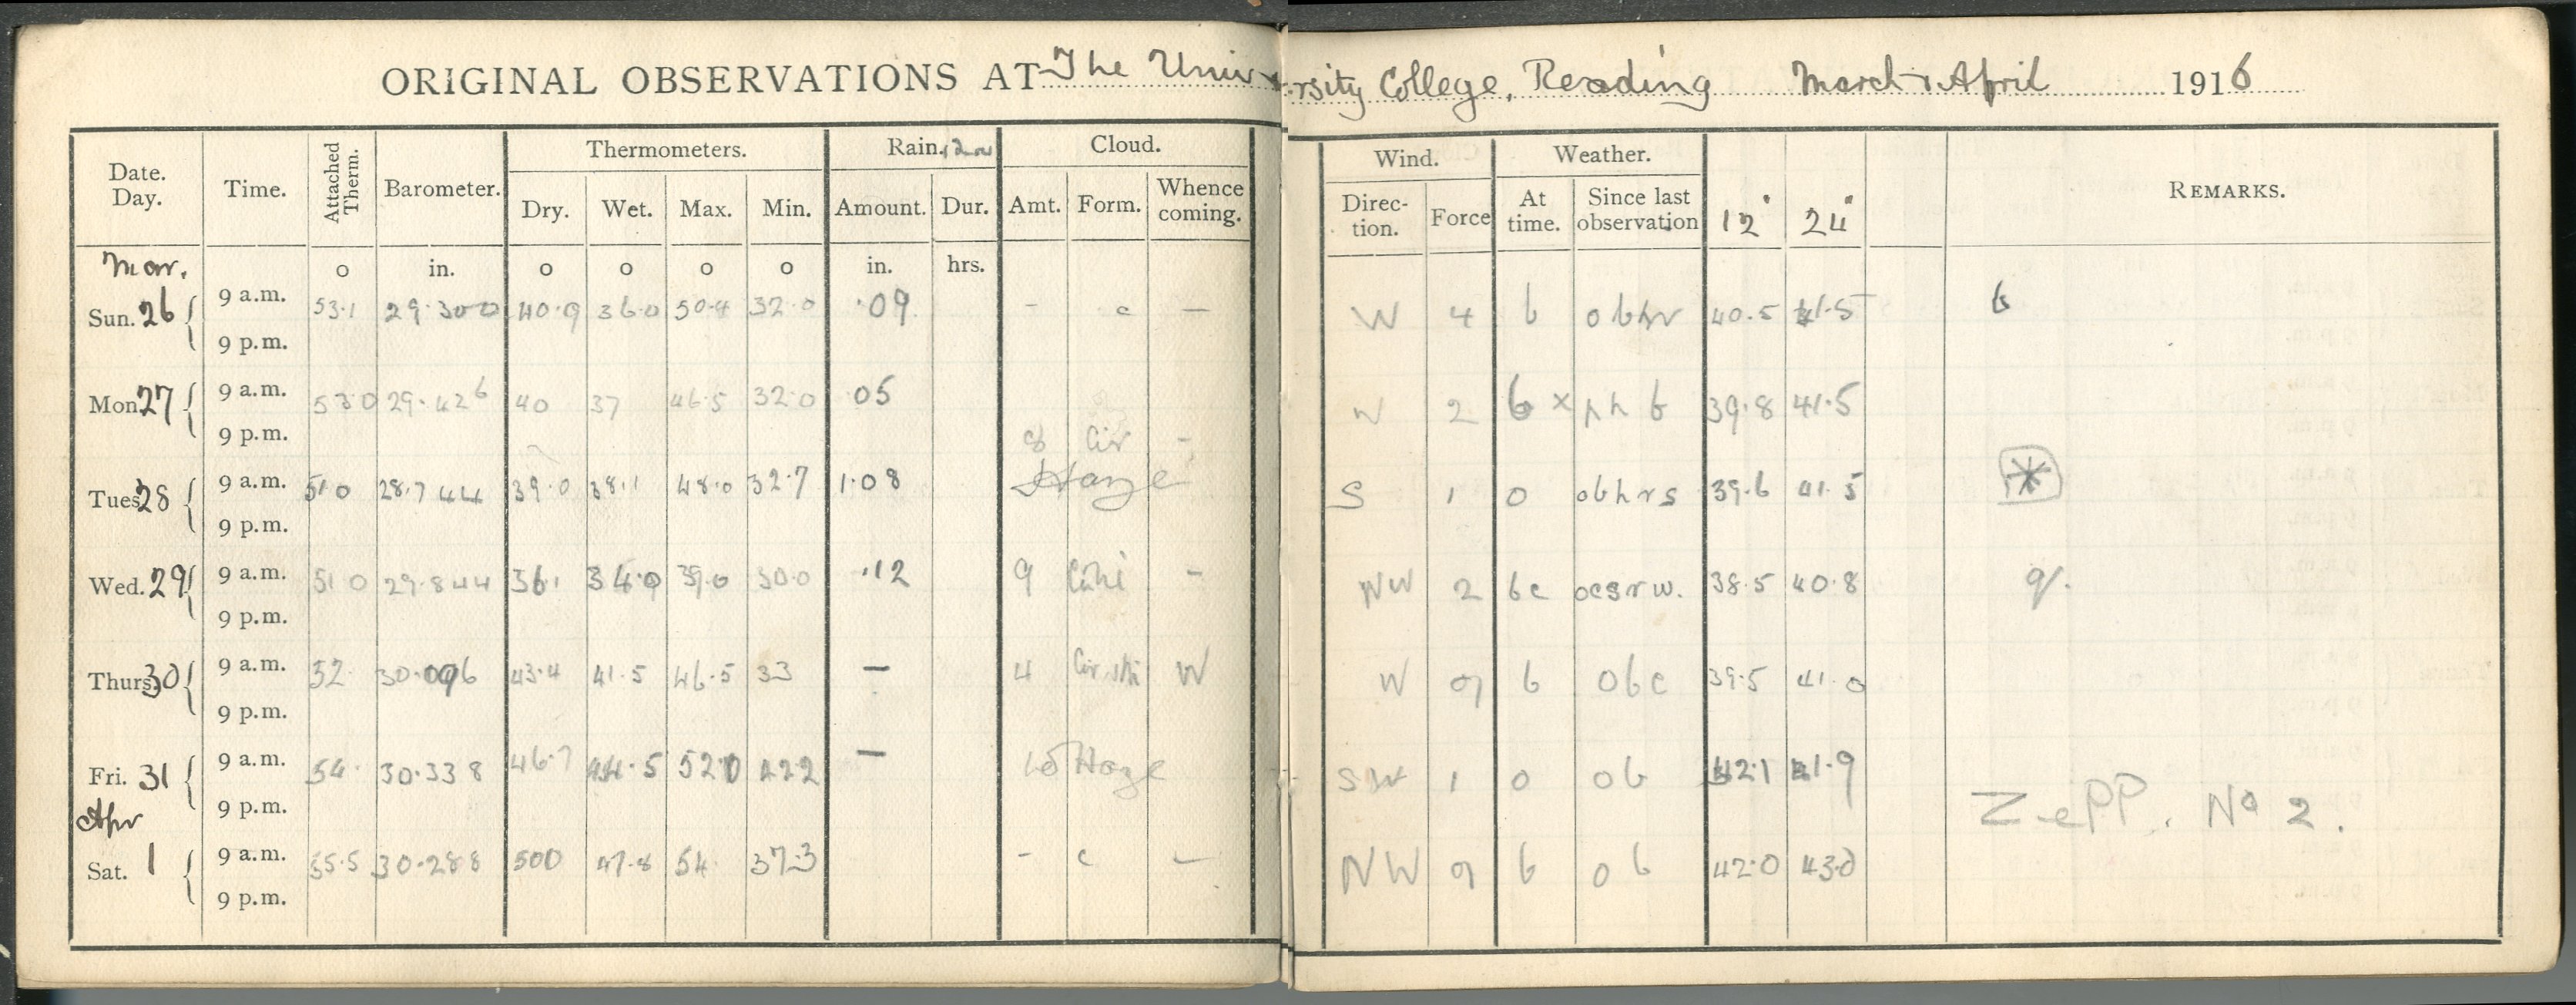 ORIGINAL OBSERVATIONS AT The University College, Reading March & April 1916
Date. Day. Time. Attached Therm. Barometer. Thermometers. Dry. Wet. Max. Min. Rain. Amount. Dur. Cloud. Amt. Form. Whence coming. Wind. Direction. Force Weather. At time. Since last observation 12" 24" REMARKS.
Mar. o in. o o o o in. hrs.
Sun. 26 9 a.m. 53.1 29.300 40.9 36.0 50.4 32.0 .09 - c - W 4 b obhr 40.5 41.5 b
9 p.m.
Mon. 27 9 a.m. 53.0 29.426 40 37 46.5 32.0 .05 8 Cir - W 2 b x phb 39.8 41.5
9 p.m.
Tues. 28 9 a.m. 51.0 28.744 39.0 38.1 48.0 32.7 1.08 Haze S 1 o obhrs 39.6 41.5 *
9 p.m.
Wed. 29 9 a.m. 51.0 29.844 36.1 34.0 39.0 30.0 .12 9 - NW 2 bc ocsrw. 38.5 40.8 9/.
9 p.m.
Thurs. 30 9 a.m. 52. 30.096 43.4 41.5 46.5 33 — 4 W W b obc 39.5 41.0
9 p.m.
Fri. 31 9 a.m. 54. 30.338 46.7 44.5 52.0 — Haze SW 1 o ob 42.1 41.9
9 p.m.
Zepp. No 2.
Apr
Sat. 1 9 a.m. 55.5 30.288 50.0 47.8 54. 37.3 - c - NW b ob 42.0 43.0
9 p.m.